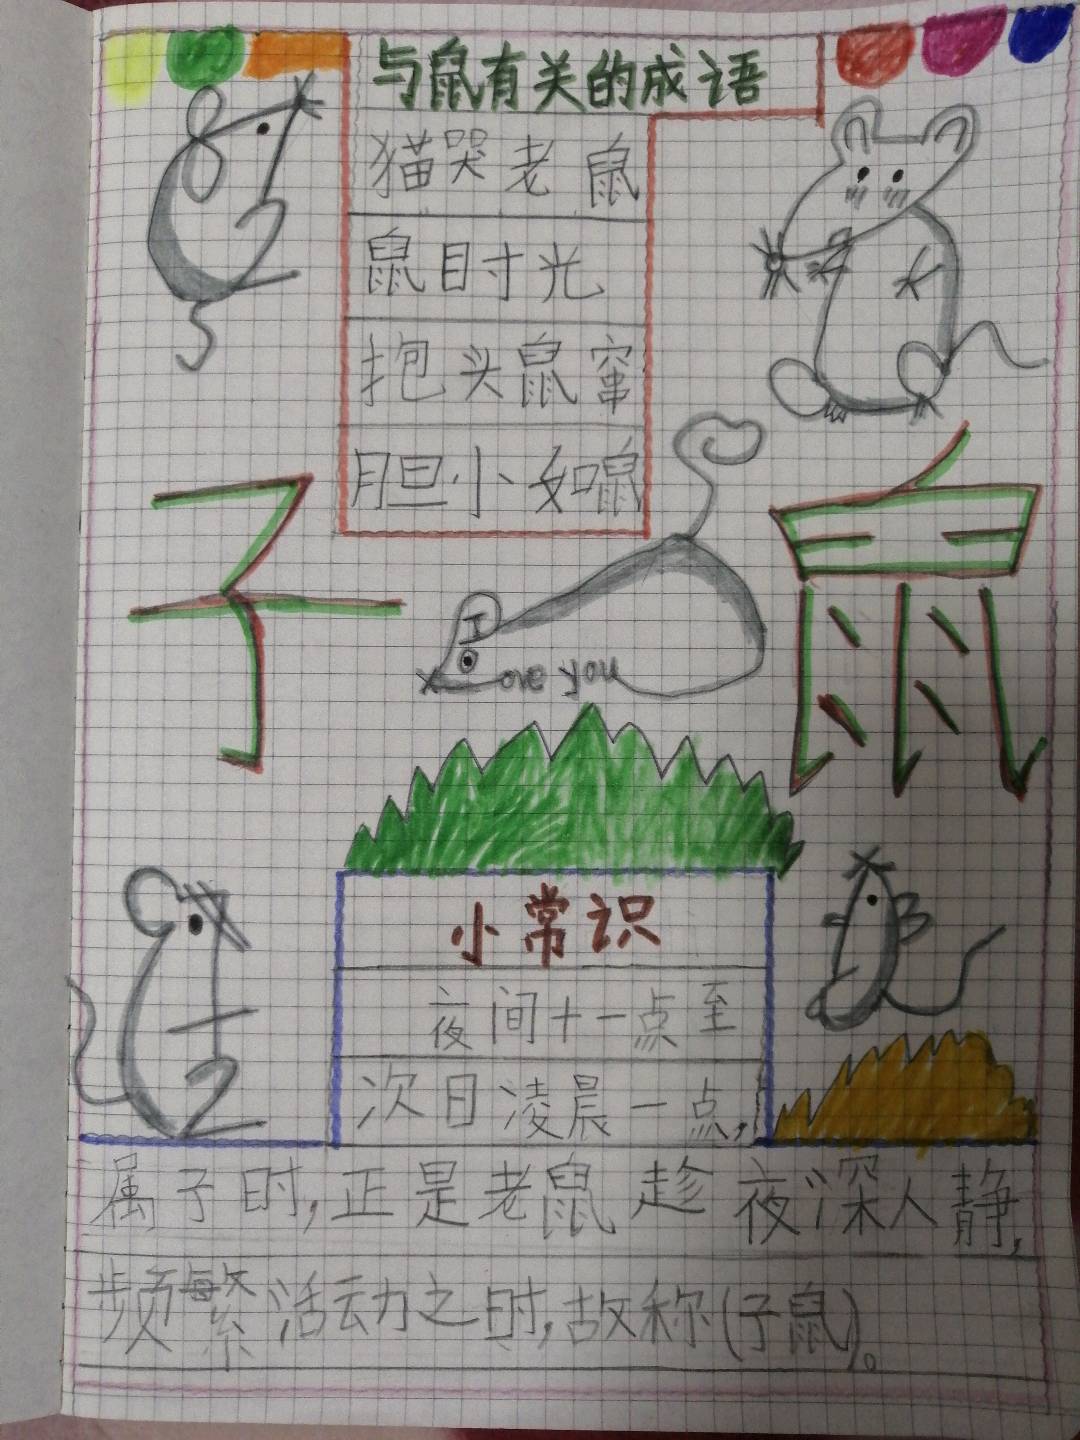 与鼠有关的成语
猫哭老鼠
鼠目寸光
抱头鼠窜
胆小如鼠
子鼠
I
Love you
小常识
夜间十一点至
次日凌晨一点,
属子时,正是老鼠趁夜深人静,
频繁活动之时,故称(子鼠)。